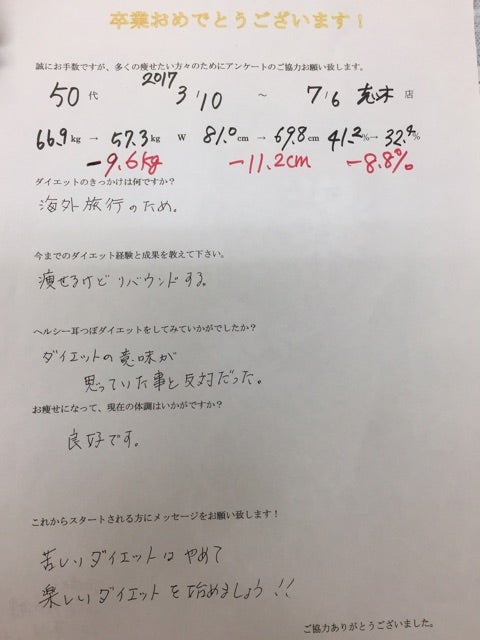 卒業おめでとうございます！
誠にお手数ですが、多くの痩せたい方々のためにアンケートのご協力お願い致します。
50代 2017 3/10 ～ 7/6 志木店
66.9kg → 57.3kg W 81.0cm → 69.8cm 41.2% → 32.4%
-9.6kg -11.2cm -8.8%
ダイエットのきっかけは何ですか？
海外旅行のため。
今までのダイエット経験と成果を教えて下さい。
痩せるけどリバウンドする。
ヘルシー耳つぼダイエットをしてみていかがでしたか？
ダイエットの意味が
思っていた事と反対だった。
お痩せになって、現在の体調はいかがですか？
良好です。
これからスタートされる方にメッセージをお願い致します！
苦しいダイエットはやめて
楽しいダイエットを始めましょう!!
ご協力ありがとうございました。